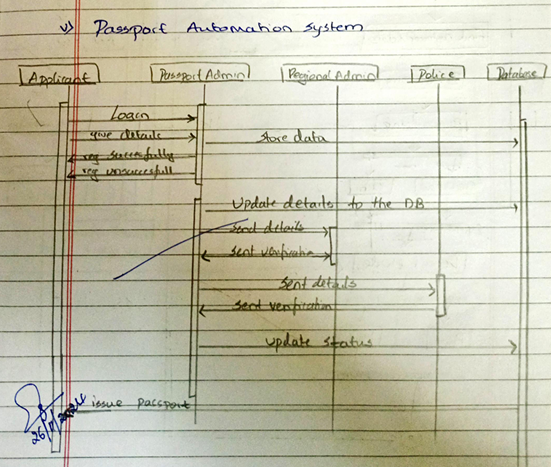 v) Passport Automation System
Applicant Passport Admin Regional Admin Police Database
Login
give details
store data
reg successfully
reg unsuccesfull
Update details to the DB
send details
sent verificatio
sent details
sent verification
update status
issue passport
26/11/2024